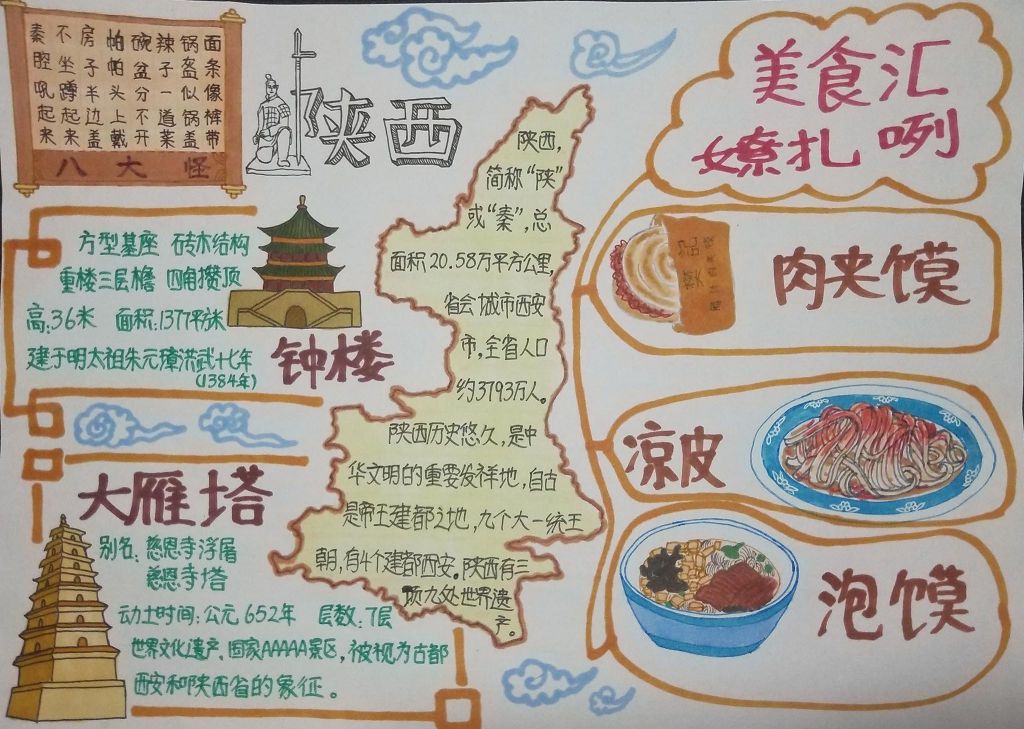 面条像裤带
锅盔似锅盖
辣子一道菜
碗盆分不开
帕帕头上戴
房子半边盖
不坐蹲起来
秦腔吼起来
八大怪
陕西
方型基座 砖木结构
重楼三层檐 四角攒顶
高:36米 面积:1377平方米
建于明太祖朱元璋洪武十七年
(1384年)
钟楼
大雁塔
别名:慈恩寺浮屠
慈恩寺塔
动土时间:公元652年 层数:7层
世界文化遗产、国家AAAAA景区,被视为古都
西安和陕西省的象征。
陕西,
简称“陕”
或“秦”,总
面积20.58万平方公里,
省会城市西安
市,全省人口
约3793万人。
陕西历史悠久,是中
华文明的重要发祥地,自古
是帝王建都之地,九个大一统王
朝,有4个建都西安。陕西有三
项九处世界遗
产。
美食汇
嫽扎咧
肉夹馍
凉皮
泡馍